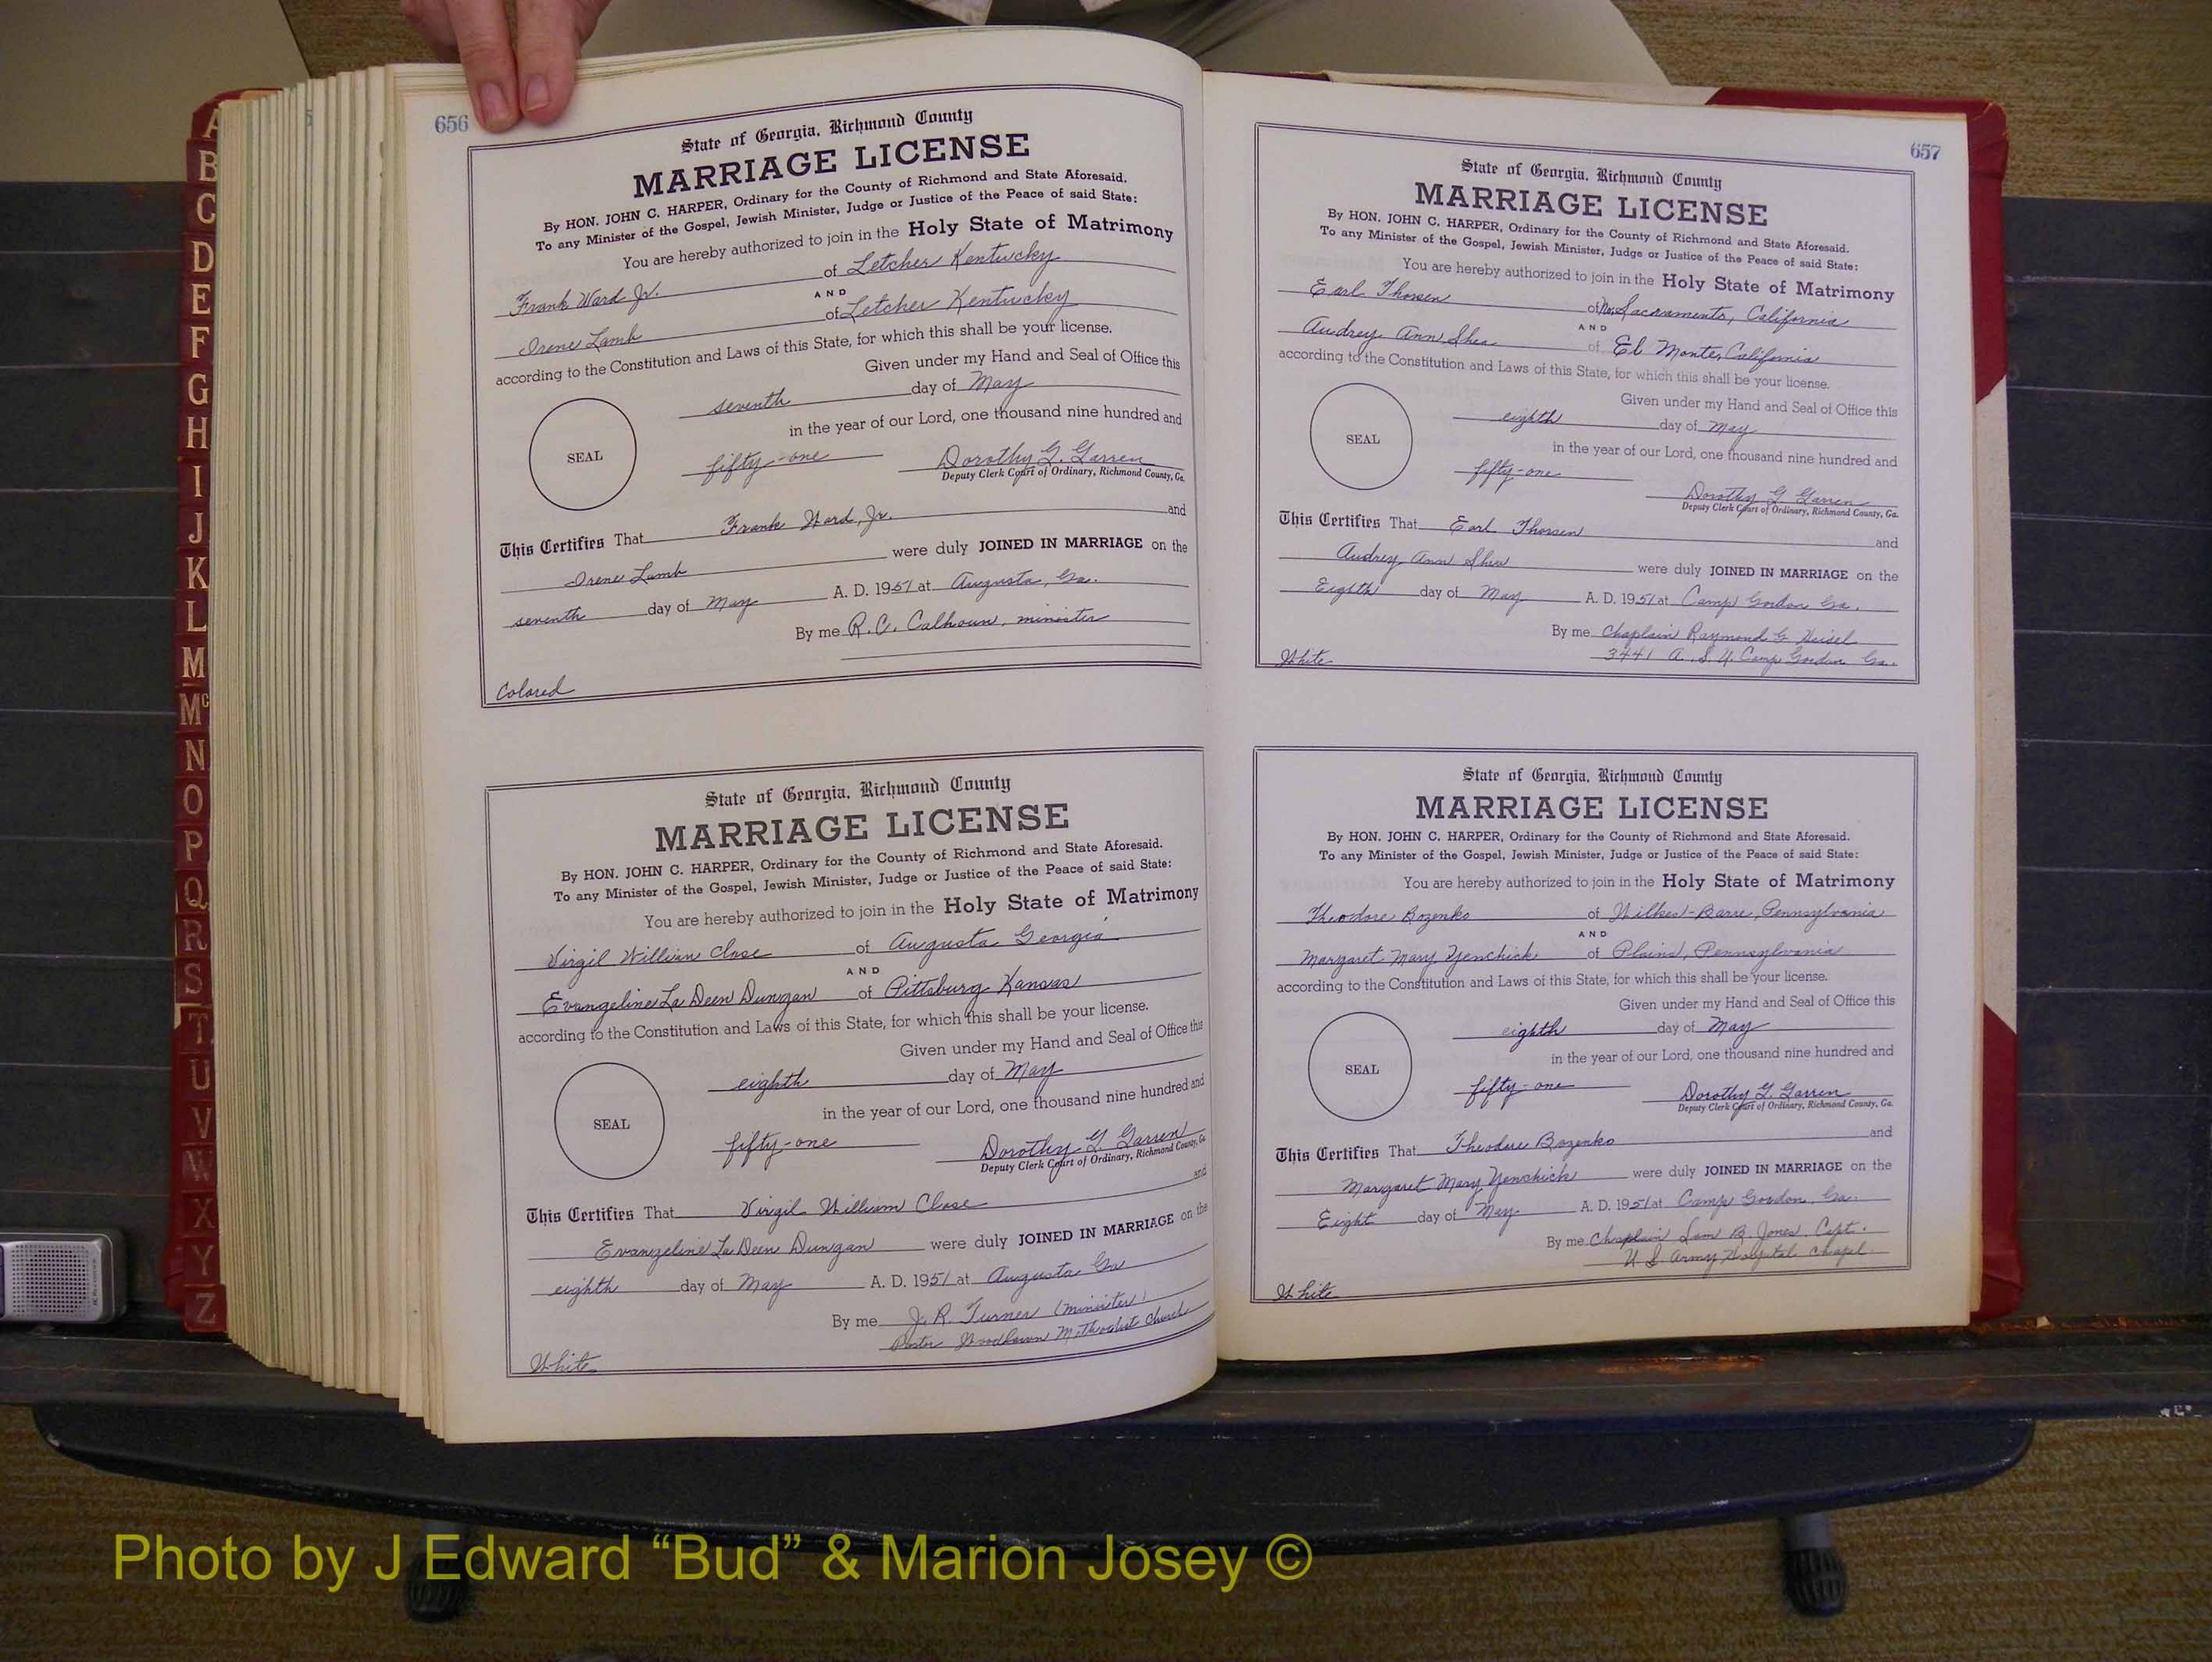 A
B
C
D
E
F
G
H
I
J
K
L
M
Mc
N
O
P
Q
R
S
T
U
V
W
X
Y
Z
656
State of Georgia, Richmond County
MARRIAGE LICENSE
By HON. JOHN C. HARPER, Ordinary for the County of Richmond and State Aforesaid.
To any Minister of the Gospel, Jewish Minister, Judge or Justice of the Peace of said State:
You are hereby authorized to join in the Holy State of Matrimony
Frank Ward Jr. of Letcher Kentucky
AND
Irene Lamb of Letcher Kentucky
according to the Constitution and Laws of this State, for which this shall be your license.
Given under my Hand and Seal of Office this
seventh day of May
in the year of our Lord, one thousand nine hundred and
SEAL
fifty-one Dorothy G. Garren
Deputy Clerk Court of Ordinary, Richmond County, Ga.
This Certifies That Frank Ward, Jr. and
Irene Lamb were duly JOINED IN MARRIAGE on the
seventh day of May A. D. 1951 at Augusta, Ga.
By me R. C. Calhoun, minister
Colored
State of Georgia, Richmond County
MARRIAGE LICENSE
By HON. JOHN C. HARPER, Ordinary for the County of Richmond and State Aforesaid.
To any Minister of the Gospel, Jewish Minister, Judge or Justice of the Peace of said State:
You are hereby authorized to join in the Holy State of Matrimony
Virgil William Close of Augusta Georgia
AND
Evangeline La Deen Dunigan of Pittsburg Kansas
according to the Constitution and Laws of this State, for which this shall be your license.
Given under my Hand and Seal of Office this
eighth day of May
in the year of our Lord, one thousand nine hundred and
SEAL
fifty-one Dorothy G. Garren
Deputy Clerk Court of Ordinary, Richmond County, Ga.
This Certifies That Virgil William Close and
Evangeline La Deen Dunigan were duly JOINED IN MARRIAGE on the
eighth day of May A. D. 1951 at Augusta Ga
By me J. R. Turner (minister)
Pastor Woodlawn Methodist Church
White
657
State of Georgia, Richmond County
MARRIAGE LICENSE
By HON. JOHN C. HARPER, Ordinary for the County of Richmond and State Aforesaid.
To any Minister of the Gospel, Jewish Minister, Judge or Justice of the Peace of said State:
You are hereby authorized to join in the Holy State of Matrimony
Earl Thorsen of No. Sacramento, California
AND
Audrey Ann Shea of El Monte, California
according to the Constitution and Laws of this State, for which this shall be your license.
Given under my Hand and Seal of Office this
eighth day of May
in the year of our Lord, one thousand nine hundred and
SEAL
fifty-one
Dorothy G Garren
Deputy Clerk Court of Ordinary, Richmond County, Ga.
This Certifies That Earl Thorsen and
Audrey Ann Shea were duly JOINED IN MARRIAGE on the
Eighth day of May A. D. 1951 at Camp Gordon Ga.
By me Chaplain Raymond G.
3441 A. S. U. Camp Gordon Ga.
White
State of Georgia, Richmond County
MARRIAGE LICENSE
By HON. JOHN C. HARPER, Ordinary for the County of Richmond and State Aforesaid.
To any Minister of the Gospel, Jewish Minister, Judge or Justice of the Peace of said State:
You are hereby authorized to join in the Holy State of Matrimony
Theodore Bozenko of Wilkes-Barre, Pennsylvania
AND
Margaret Mary Yenchick of Plains, Pennsylvania
according to the Constitution and Laws of this State, for which this shall be your license.
Given under my Hand and Seal of Office this
eighth day of May
in the year of our Lord, one thousand nine hundred and
SEAL
fifty-one Dorothy G. Garren
Deputy Clerk Court of Ordinary, Richmond County, Ga.
This Certifies That Theodore Bozenko and
Margaret Mary Yenchick were duly JOINED IN MARRIAGE on the
Eight day of May A. D. 1951 at Camp Gordon, Ga.
By me Chaplain Sam B. Jones Capt.
U S. Army Hospital Chapel
White
Photo by J Edward “Bud” & Marion Josey ©